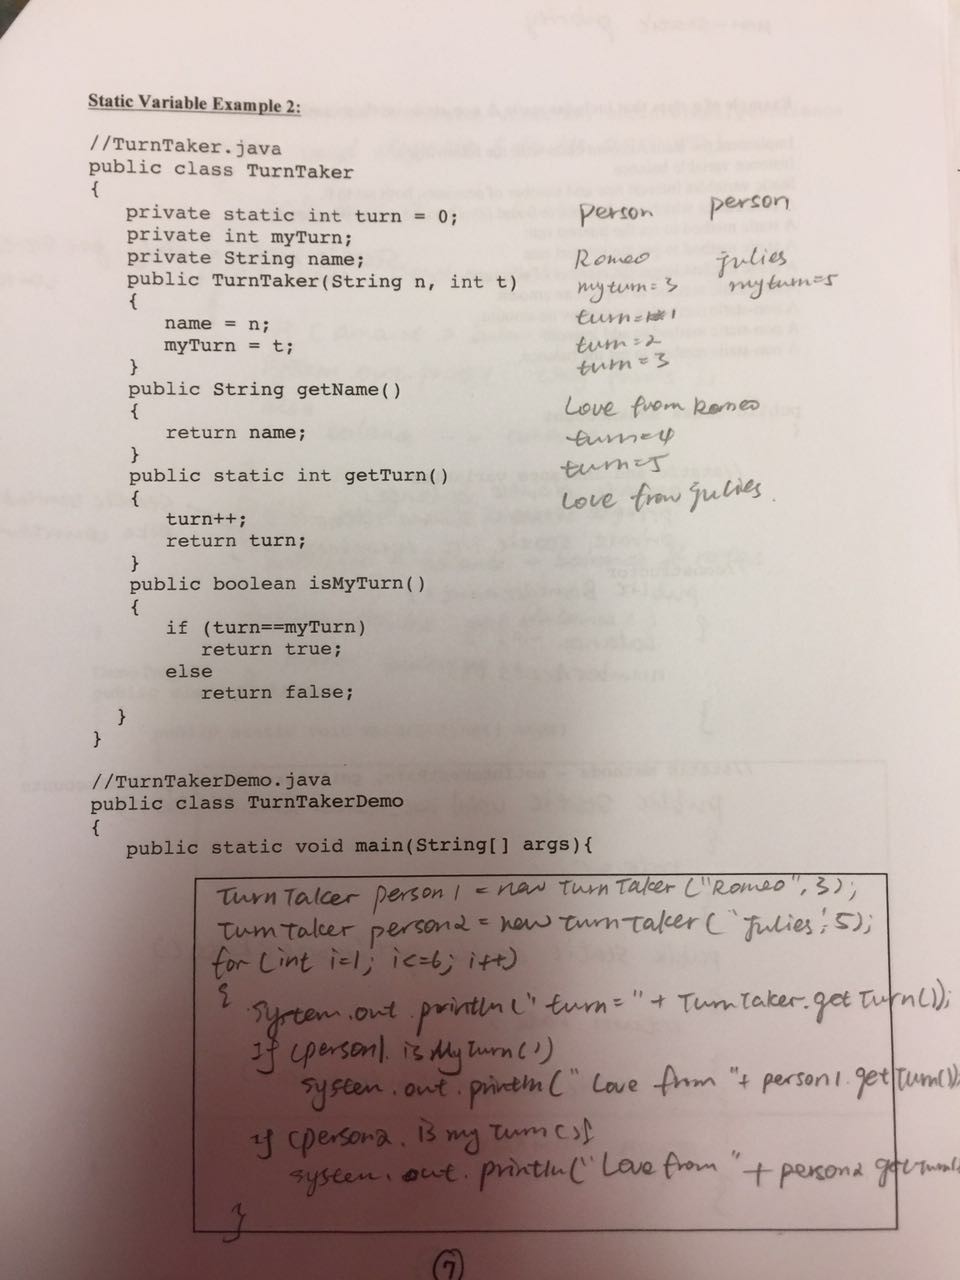 Static Variable Example 2:
//TurnTaker.java
public class TurnTaker
{
private static int turn = 0;
private int myTurn;
private String name;
public TurnTaker(String n, int t)
{
name = n;
myTurn = t;
}
public String getName()
{
return name;
}
public static int getTurn()
{
turn++;
return turn;
}
public boolean isMyTurn()
{
if (turn==myTurn)
return true;
else
return false;
}
}
person person
Romeo julies
myturn=3 myturn=5
turn=1
turn=2
turn=3
Love from Romeo
turn=4
turn=5
Love from julies.
//TurnTakerDemo.java
public class TurnTakerDemo
{
public static void main(String[] args){
TurnTaker person1 = new TurnTaker ("Romeo", 3);
TurnTaker person2 = new turntaker ("julies", 5);
for (int i=1; i<=6; i++)
{ system.out.println (" turn=" + TurnTaker.getTurn());
If (person1. is My Turn())
system.out.println (" Love from "+ person1.getTurn());
if (person2. is my Turn())
system.out.println("Love from " + person2 getTurn(
}
7